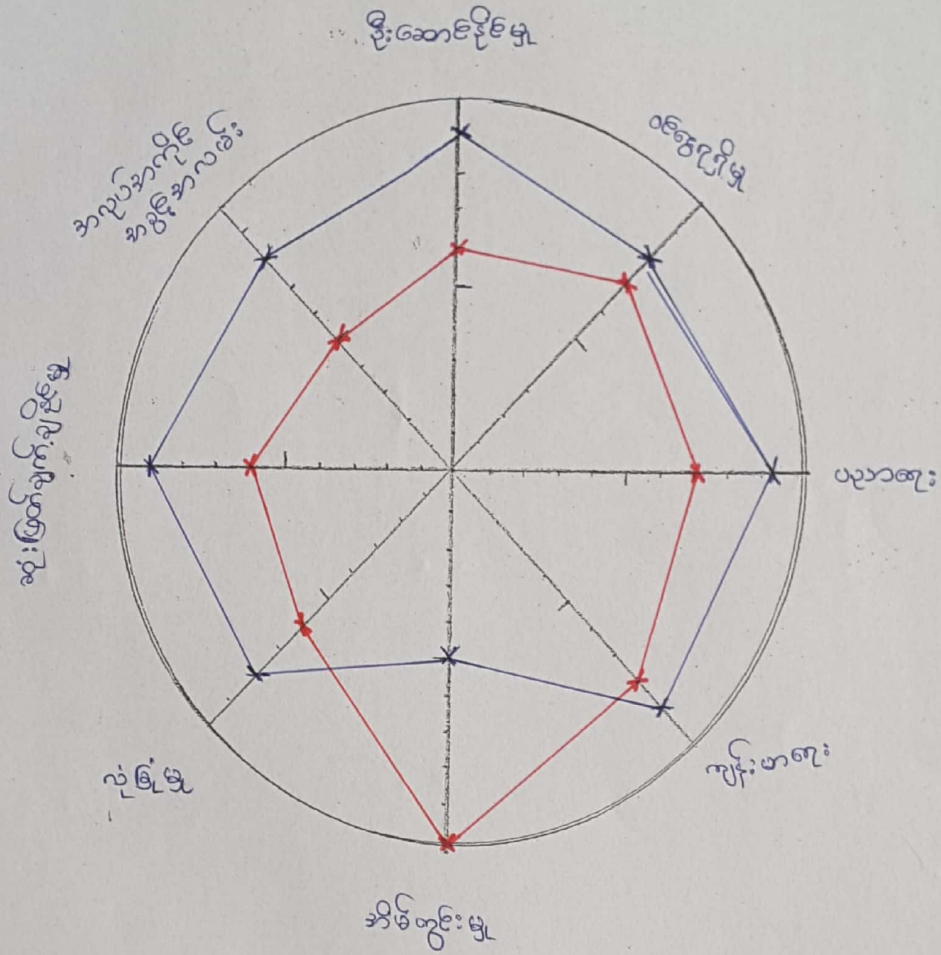 ဦးဆောင်နိုင်မှု
ဝင်ငွေရရှိမှု
ပညာရေး
ကျန်းမာရေး
အိမ်တွင်းမှု
လုံခြုံမှု
ဆုံးဖြတ်ချက်ချနိုင်မှု
အလုပ်အကိုင်
အခွင့်အလမ်း